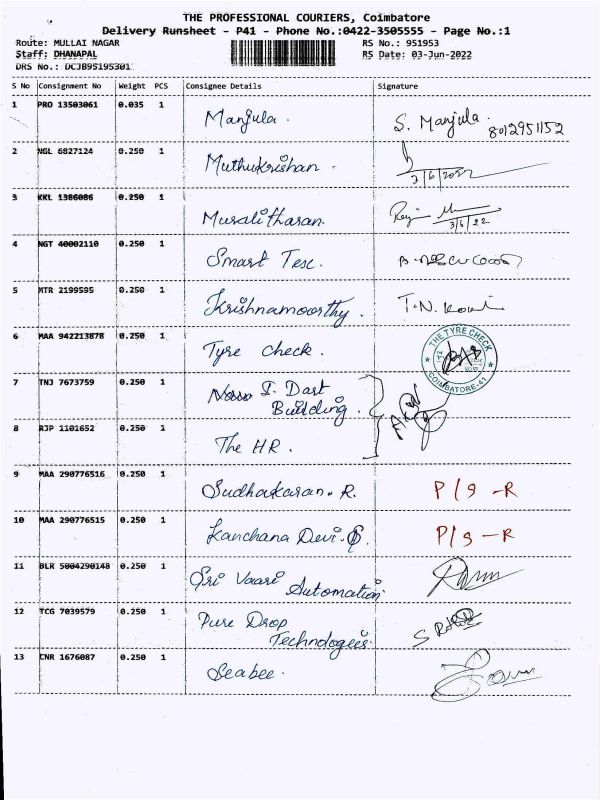 THE PROFESSIONAL COURIERS, Coimbatore
Delivery Runsheet - P41 - Phone No.:0422-3505555 - Page No.:1
Route: MULLAI NAGAR RS No.: 951953
Staff: DHANAPAL RS Date: 03-Jun-2022
DRS No.: DCJB95195301
S No Consignment No Weight PCS Consignee Details Signature
1 PRO 13503061 0.035 1 Manjula. S. Manjula. 8012951152
2 NGL 6827124 0.250 1 Muthukrishan. 3/6/2022
3 KKL 1386086 0.250 1 Muralitharan. 3/6/22
4 NGT 40002110 0.250 1 Smart Tesc.
5 MTR 2199595 0.250 1 Krishnamoorthy. T.N.
6 MAA 942213878 0.250 1 Tyre Check. THE TYRE CHECK COIMBATORE-41
7 TNJ 7673759 0.250 1 I. Dart
Building.
8 RJP 1101652 0.250 1 The HR.
9 MAA 290776516 0.250 1 Sudhakaran. R. P/S -R
10 MAA 290776515 0.250 1 Kanchana Devi. P/S -R
11 BLR 5004290148 0.250 1 Sri Vaari
Automation.
12 TCG 7039579 0.250 1 Pure Drop
Technologies.
13 CNR 1676087 0.250 1 Seabee.